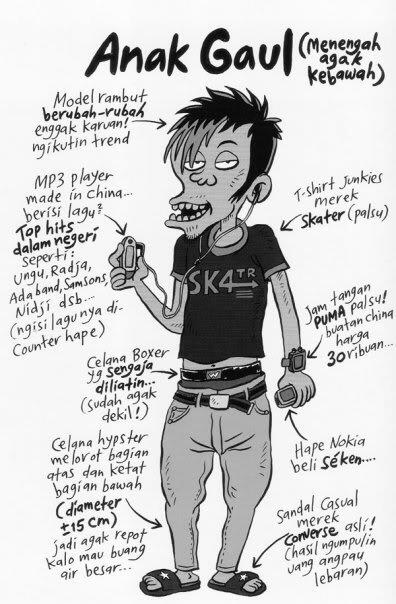 Anak Gaul
(menengah
agak
kebawah)
Model rambut
berubah-rubah
enggak karuan!
ngikutin trend
MP3 player
made in China...
berisi lagu²
Top hits
dalam negeri
seperti:
ungu, Radja,
Adaband, Samsons,
Nidji dsb...
(ngisi lagunya di-
Counter hape)
T-shirt Junkies
merek
Skater (palsu)
SK4TR
Jam tangan
PUMA palsu!
buatan china
harga
30 ribuan...
Celana Boxer
yg sengaja
diliatin...
(sudah agak
dekil!)
W
Hape Nokia
beli séken....
Celana hypster
melorot bagian
atas dan ketat
bagian bawah
(diameter
±15 cm)
jadi agak repot
kalo mau buang
air besar...
Sandal Casual
merek
Converse asli!
(hasil ngumpulin
uang angpau
lebaran)